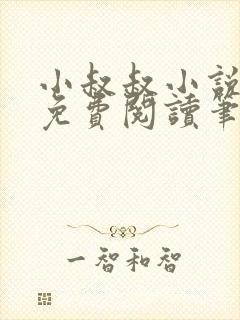 小叔叔小說
免費閱讀筆
一智和智